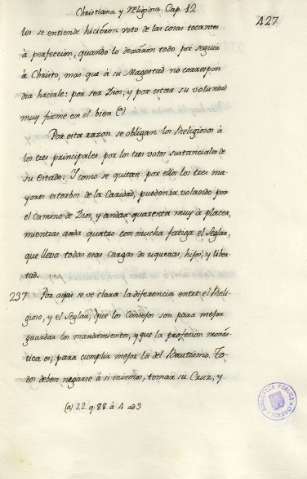 Christiana y Religiosa. Cap. 12
427
no se entiende hiciesen voto de las cosas tocantes
à perfeccion, quando lo dexáron todo por seguir
à Christo, mas que à su Magestad no correspon
dia hacerle: por ser Dios; y por estar su voluntad
muy firme en el bien
Por esta razon se obligan los Religiosos à
los tres principales, por los tres votos sustanciales de
su Estado. Y como se quitan por ellos los tres ma
yores estorbos de la Caridad, pueden ir volando por
el Camino de Dios, y andar quarenta muy à placer,
mientras anda quatro con mucha fatiga el Seglar,
que lleva todas esas cargas de riquezas, hijos, y liber
tad.
237 Por aqui se ve clara la diferencia entre el Reli
gioso, y el Seglar, que los Consejos son para mejor
guardar los mandamientos, y que la profesion monás
tica es, para cumplir mejor la del Bautismo. To
dos deben negarse à si mismos, tomar su Cruz, y
(a) 22 q 88 à 4 ad 3